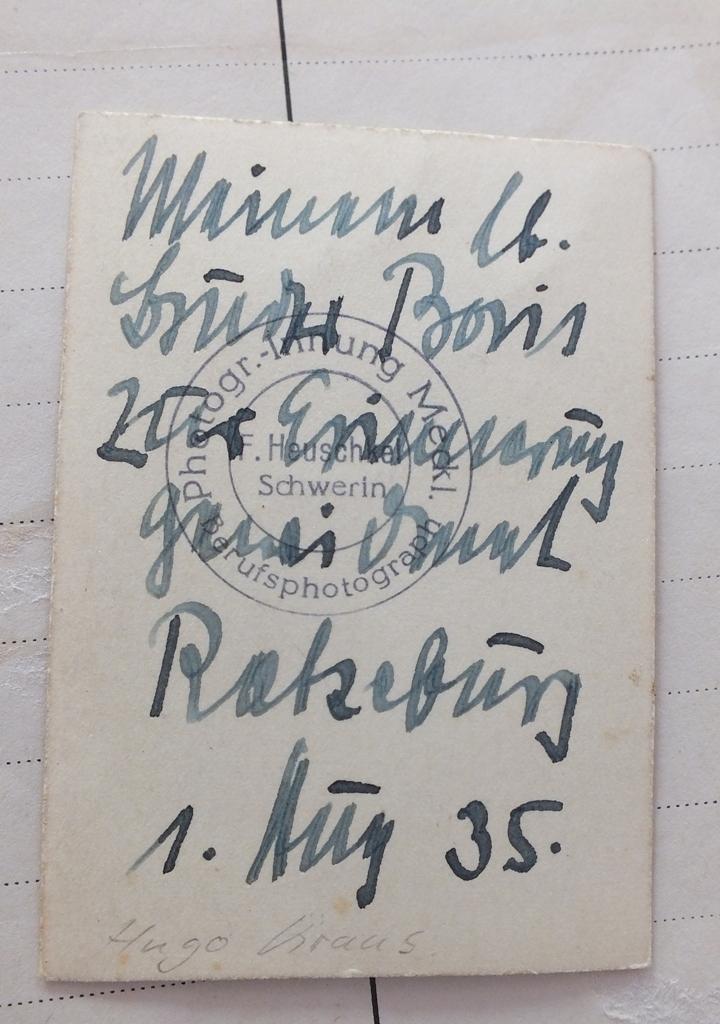 Meinem lb.
Bruder Boris
zur Erinnerung
gewidmet
Ratzeburg
1. Aug 35.
Hugo Kraus.
Photogr.-Innung Meckl.
F. Heuschkel
Schwerin
Berufsphotograph